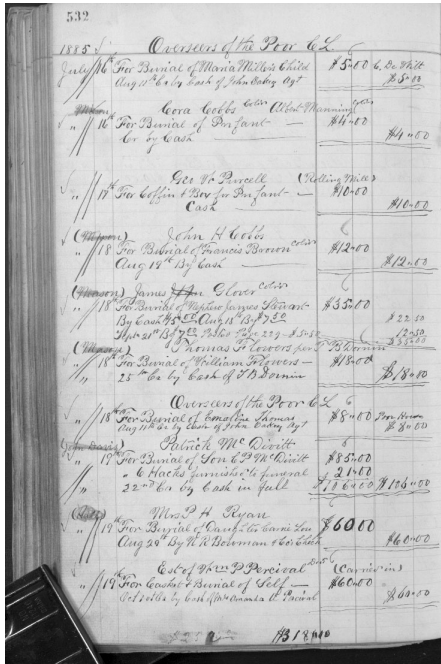 532
1885 Overseers of the Poor C L
July 16th For Burial of Maria Miller's Child $5.00 C. De Witt
Aug 11th Cr by Cash of John Oakey Agt $5.00
Cora Cobbs Cold Albert Manning Cold
" 16th For Burial of Infant — $4.00
Cr by Cash — $4.00
Geo W Purcell (Rolling Mill)
" 17th For Coffin & Box for Infant — $10.00
Cash — $10.00
John H Cobbs
" 18 For Burial of Francis Brown Cold $12.00
Aug 19th By Cash — $12.00
(Mason) James Glover Cold
" 18th For Burial of Nephew James Stewart $35.00
By Cash $15.00 Aug 18th By $7.50 $22.50
Sept 21st By 12.50
$35.00
Thomas Flowers per T B Dornin
" 18th For Burial of William Flowers — $18.00
25th Cr by Cash of T B Dornin $18.00
Overseers of the Poor C L
" 18th For Burial of Emaline Thomas $8.00 Poor House
Aug 11th Cr by Cash of John Oakey Agt $8.00
Patrick McDivitt
" 19th For Burial of Son C P McDivitt $85.00
" 6 Hacks furnished to funeral 21.00
22nd Cr by Cash in full $106.00 $106.00
Mrs P H Ryan
" 19th For Burial of Daughter Carrie Lou $60.00
Aug 29th By N R Bowman & Co's Check $60.00
Est of Wm P Percival Decd (Carrier in)
" 19th For Casket & Burial of Self — $60.00
by Cash of Mrs Amanda A Percival $60.00
$318.00